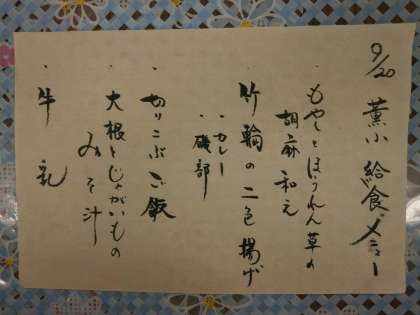 9/20 薫小 給食メニュー
・もやしとほうれん草の
胡麻和え
竹輪の二色揚げ
・カレー
・磯部
・切りこぶご飯
・大根とじゃがいもの
みそ汁
・牛乳